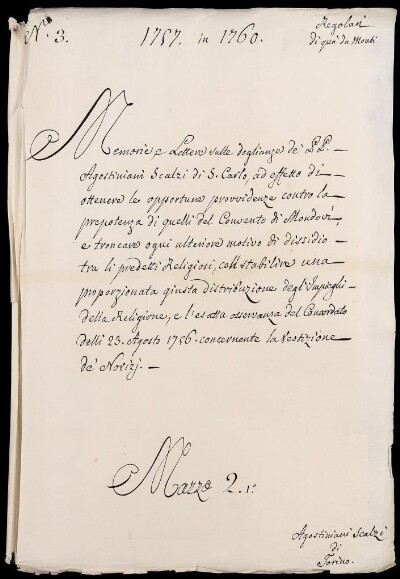 N.º 3.
1757. in 1760.
Regolari
di quà da Monti
Memorie, e Lettere sulle doglianze de' PP.
Agostiniani Scalzi di S. Carlo, ad effetto di
ottenere le opportune provvidenze contro la
prepotenza di quelli del Convento di Mondovì,
e troncare ogni ulteriore motivo di dissidio
tra li predetti Religiosi, coll stabilire una
proporzionata giusta distribuzione degl'Impieghi
della Religione, e l'esatta osservanza del Concordato
delli 23. Agosto 1756. concernente la Vestizione
de' Novizj.
Mazzo 2.º
Agostiniani Scalzi
di
Torino.